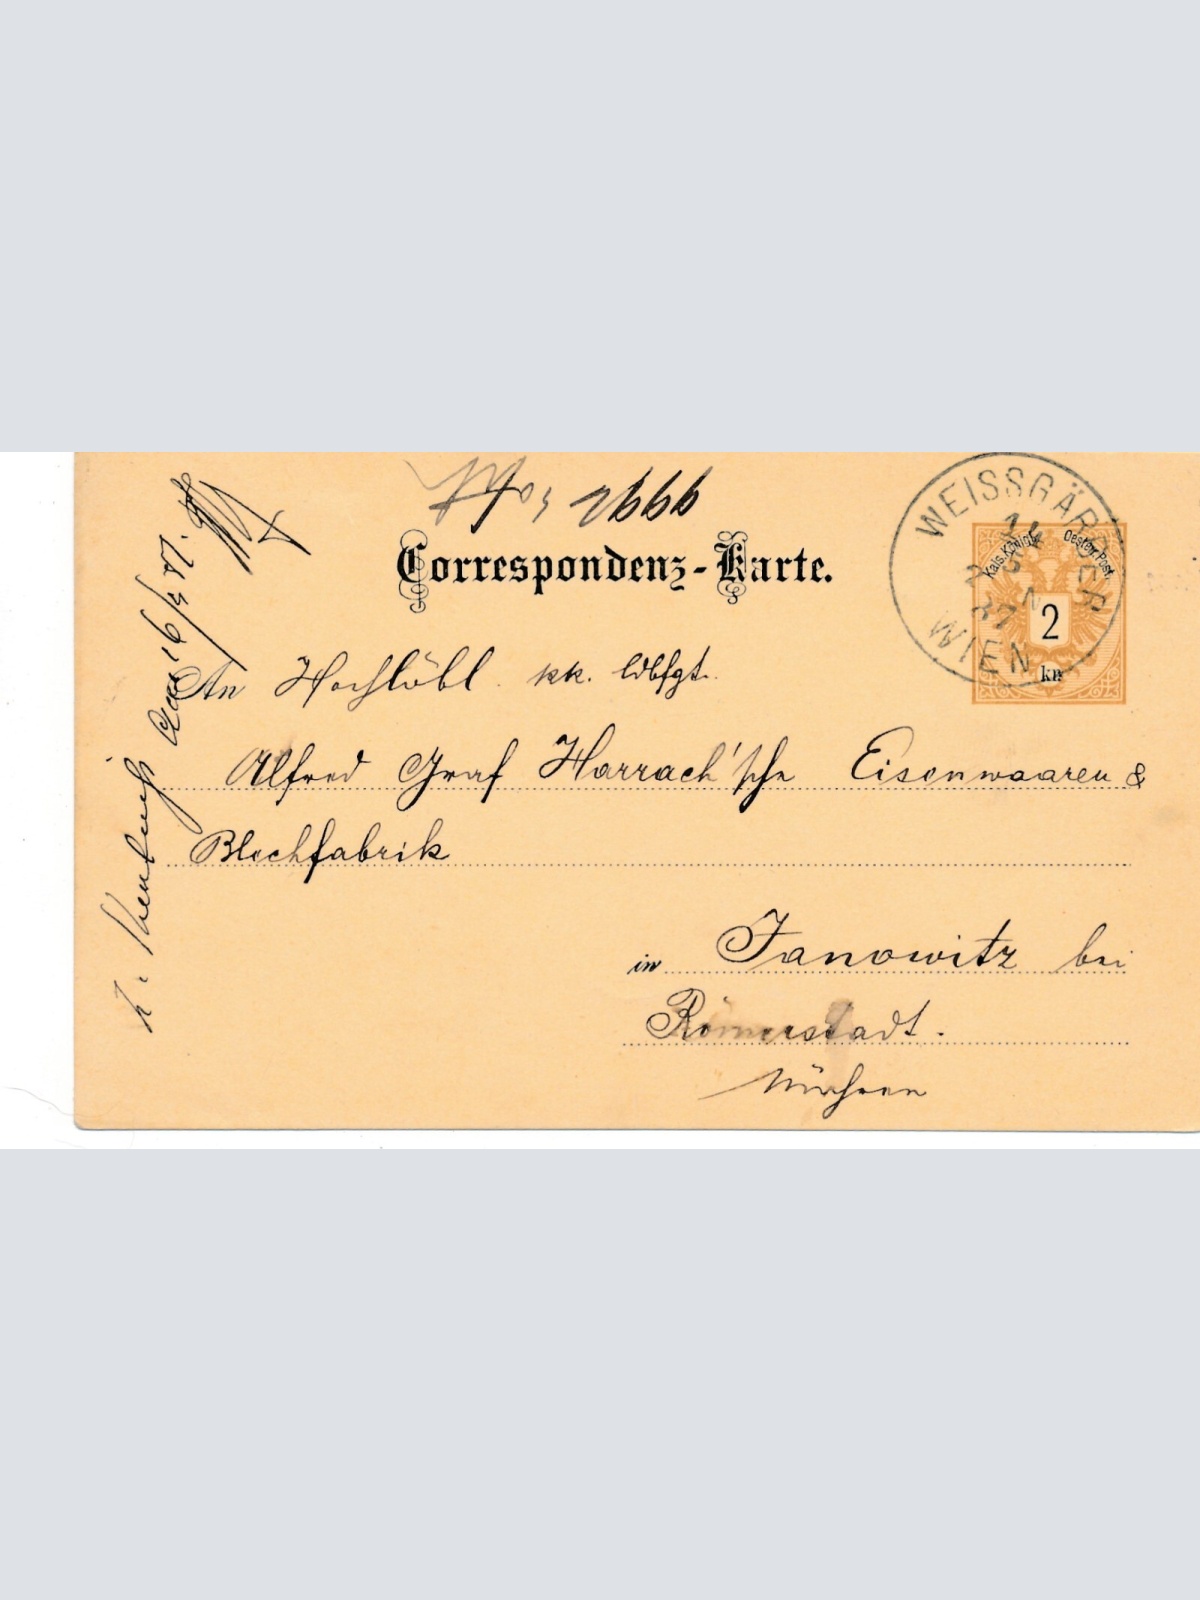 2666
Correspondenz-Karte.
WEISSGÄRBER
WIEN
Kais. Königl. Oesterr. Post.
2
kr
An Hochlöbl. kk. ldbfgt.
Alfred Graf Harrach'sche Eisenwaaren &
Blechfabrik
in Janowitz bei
Römerstadt.
Mähren